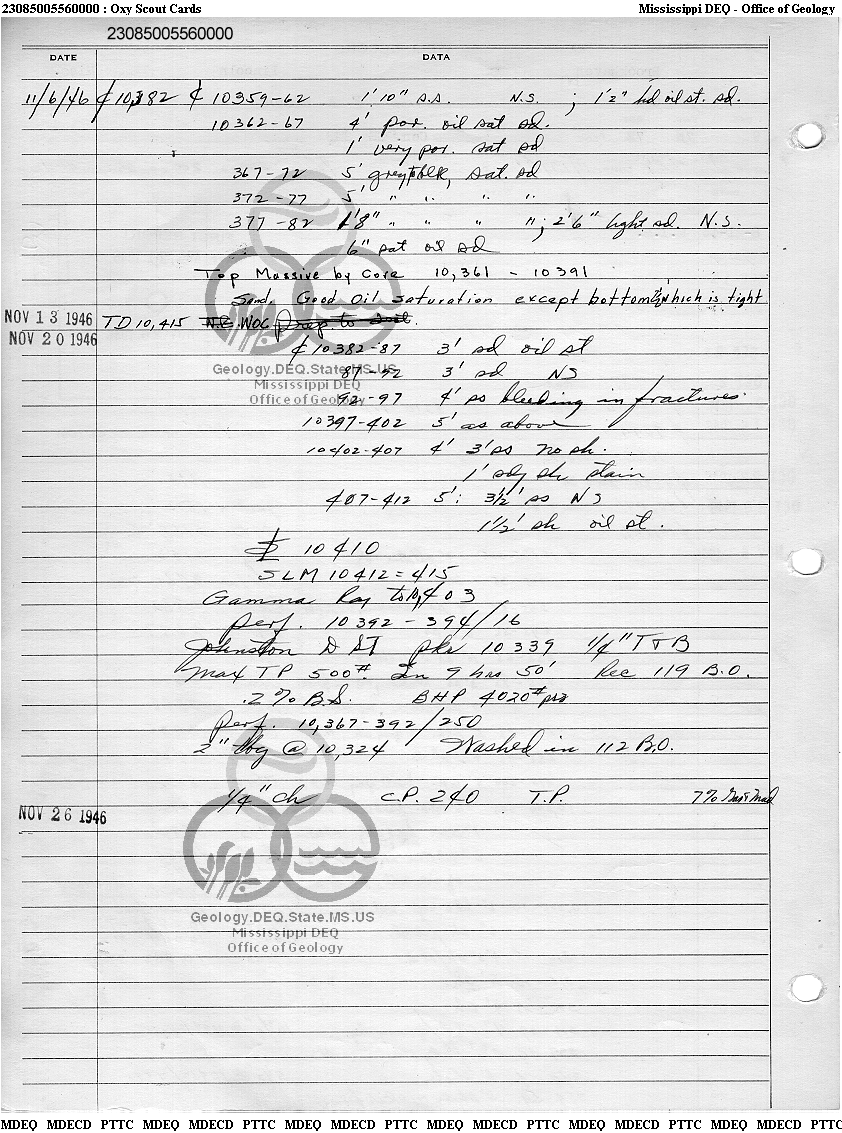 23085005560000 : Oxy Scout Cards Mississippi DEQ - Office of Geology
23085005560000
DATE DATA
11/6/46 ₵ 10,382 ₵ 10359-62 1'10" s.s. N.S. ; 1'2" hd oil st. sd.
10362-67 4' por. oil sat sd.
1' very por. sat sd
367-72 5' grey blk, sat. sd
372-77 5' " " " "
377-82 1'8" " " " " ; 2'6" light sd. N.S.
6" sat oil sd
Top Massive by Core 10,361 - 10391
Sand. Good Oil saturation except bottom which is tight
NOV 13 1946 TD 10,415 N.C. WOC Prep to
NOV 20 1946
₵ 10382-87 3' sd oil st
87-92 3' sd NS
92-97 4' ss bleeding in fractures.
10397-402 5' as above
10402-407 4' 3' ss no sh.
1' sdy sh stain
407-412 5': 3½' ss NS
1½' sh oil st.
10410
SLM 10412 = 415
Gamma Ray to 10,403
perf. 10392-394/16
Johnston DST pkr 10339 1/4" T&B
Max TP 500# In 9 hrs 50' Rec 119 B.O.
.2% B.S. BHP 4020# psi
perf. 10,367-392/250
2" tbg @ 10,324 Washed in 112 B.O.
1/4" ch C.P. 240 T.P. 7%
NOV 26 1946
Geology.DEQ.State.MS.US
Mississippi DEQ
Office of Geology
Geology.DEQ.State.MS.US
Mississippi DEQ
Office of Geology
MDEQ MDECD PTTC MDEQ MDECD PTTC MDEQ MDECD PTTC MDEQ MDECD PTTC MDEQ MDECD PTTC MDEQ MDECD PTTC